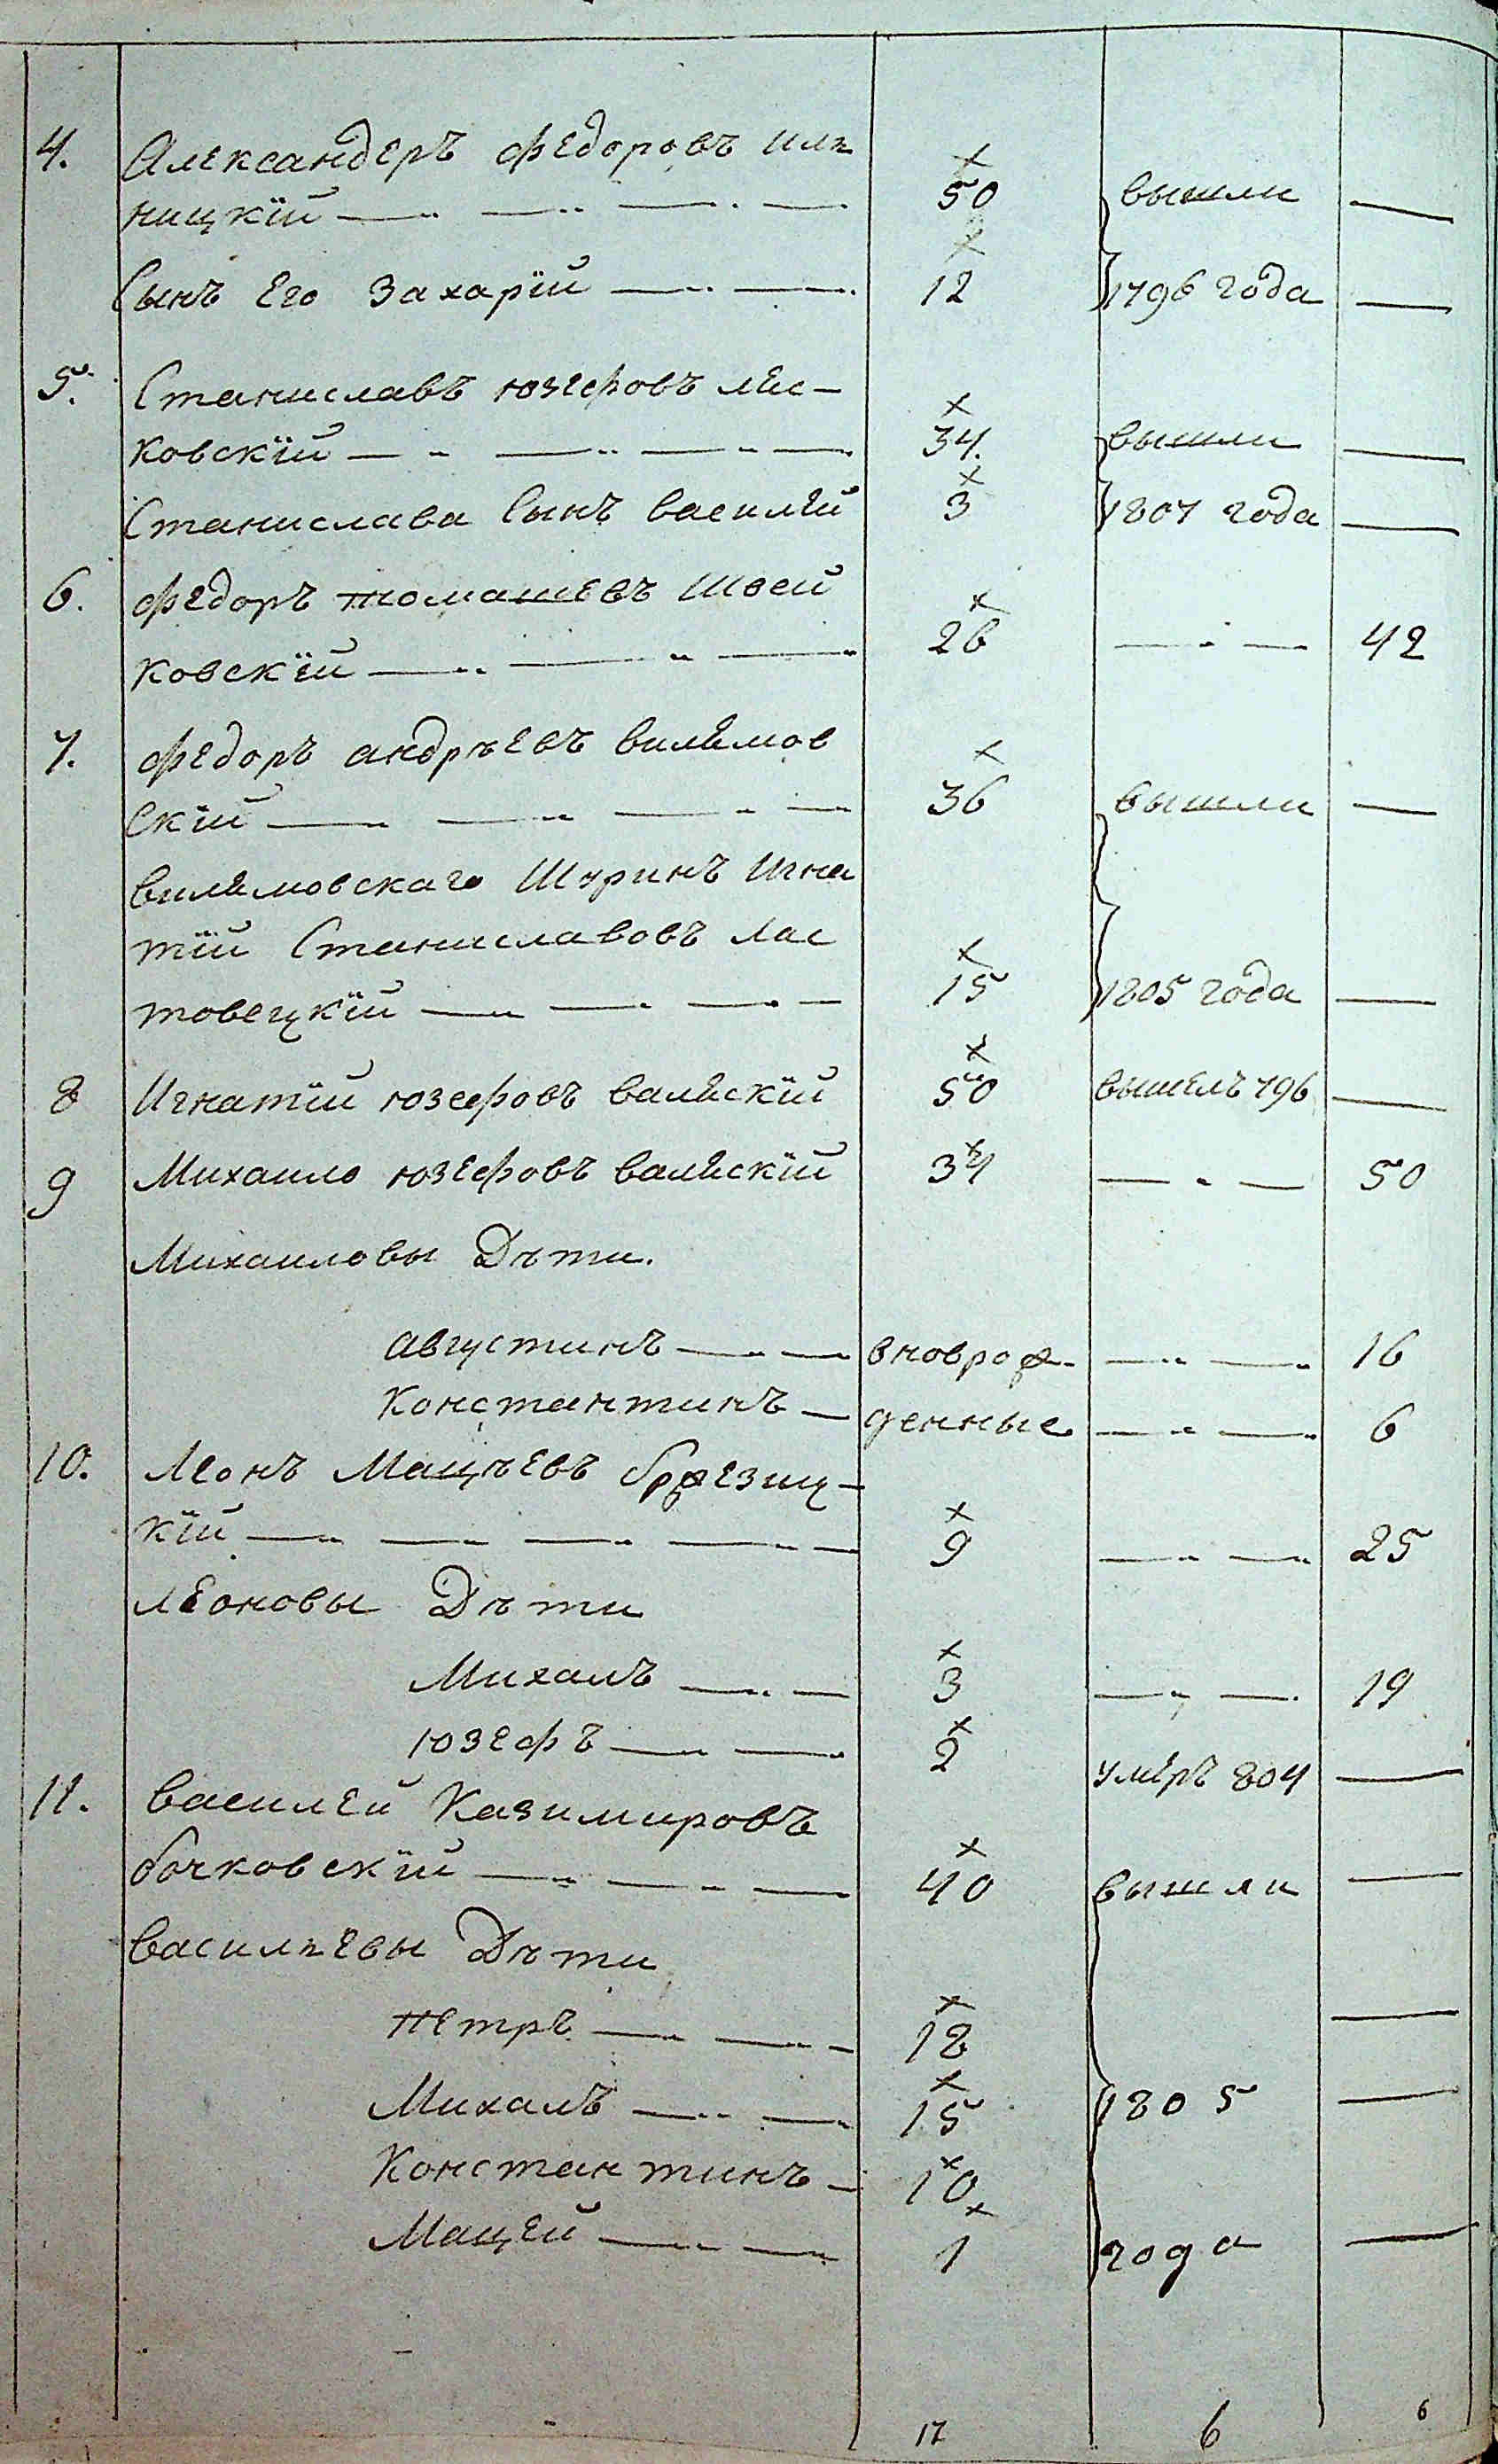 4. Александеръ Федоровъ Иль
ницкій — 50 вышли —
Сынъ Его Захарій — 12 1796 года —
5. Станиславъ Юзефовъ Лис-
ковскій — 34. вышли —
Станислава Сынъ Василій 3 1807 года —
6. Федоръ Томашевъ Швей
ковскій — 26 — 42
7. Федоръ Андрѣевъ Вилямов
скій — 36 вышли —
Вилямовскаго Шуринъ Игна
тій Станиславовъ Лас
товецкій — 15 1805 года —
8 Игнатій Юзефовъ Валѣскій 50 вышелъ 796 —
9 Михаило Юзефовъ Валѣскій 34 — 50
Михаиловы Дѣти.
Августинъ — вновърож- — 16
Константинъ — денные — 6
10. Леонъ Мацѣевъ Бржезиц-
кій — 9 — 25
Леоновы Дѣти
Михалъ — 3 — 19
Юзефъ — 2 умеръ 804 —
11. Василей Казимировъ
Бочковскій — 40 вышли —
Васильевы Дѣти
Петръ — 18 —
Михалъ — 15 1805 —
Константинъ — 10
Мацей — 1 года —
17 6 6